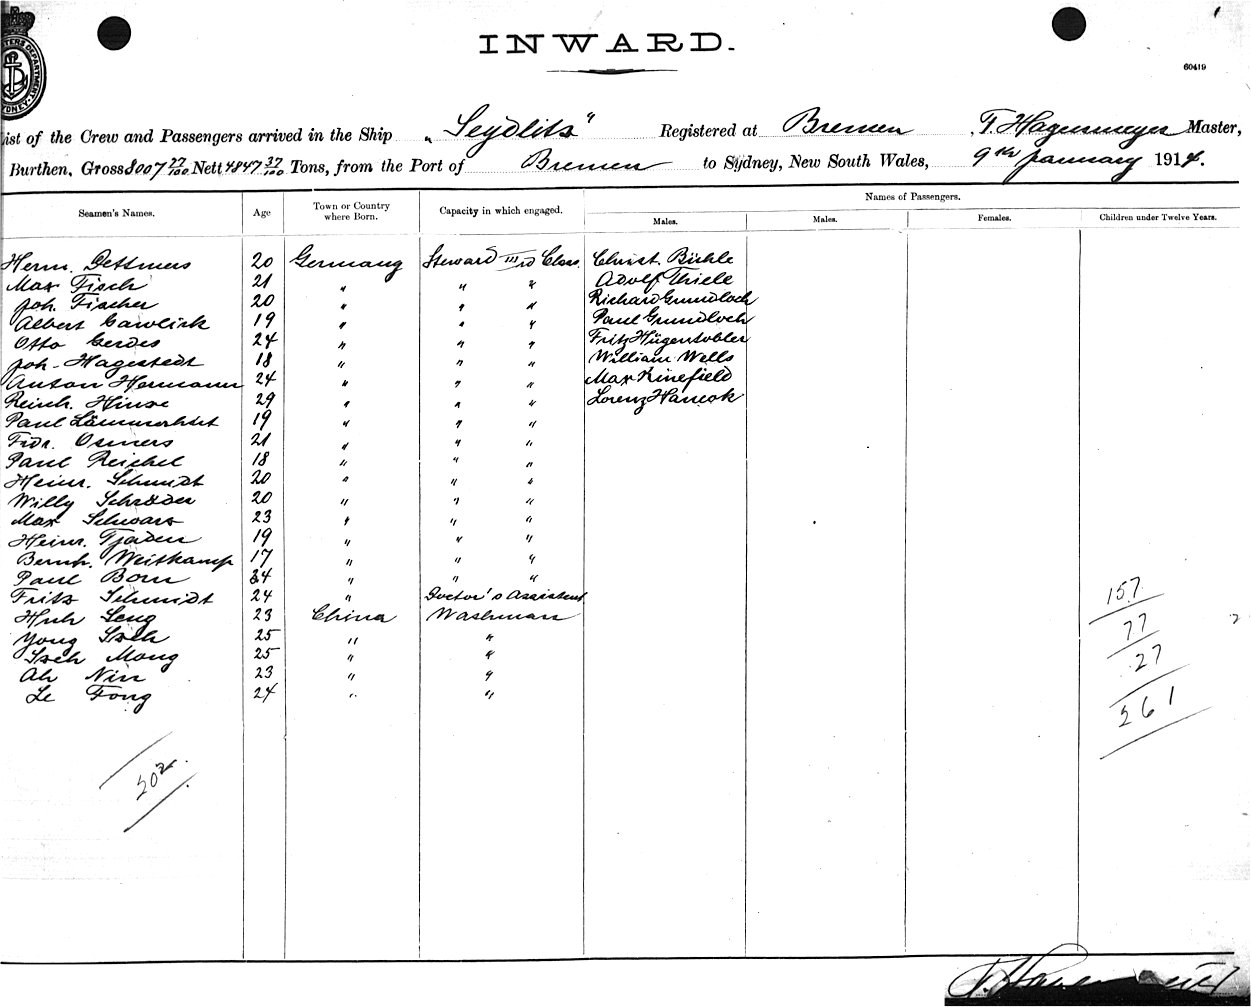 INWARD.
60419
List of the Crew and Passengers arrived in the Ship "Seydlitz" Registered at Bremen, F. Hagenmeyer Master,
Burthen, Gross 8007 27/100 Nett 4847 37/100 Tons, from the Port of Bremen to Sydney, New South Wales, 9th January 1914.
Seamen's Names. Age Town or Country where Born. Capacity in which engaged. Names of Passengers.
Males. Males. Females. Children under Twelve Years.
Herm. Dettmers 20 Germany Steward IIIrd Class Christ. Bühle
Max Fisch 21 " " " Adolf Thiele
Joh. Fischer 20 " " " Richard Grundloch
Albert Cawlick 19 " " " Paul Grundloch
Otto Gerdes 24 " " " Fritz Hügentobler
Joh. Hagestedt 18 " " " William Wells
Anton Hermann 24 " " " Max Kinefield
Reinh. Hinze 29 " " " Lorenz Hancok
Paul Lämmerhirt 19 " " "
Frdr. Osmers 21 " " "
Paul Reichel 18 " " "
Heinr. Schmidt 20 " " "
Willy Schröder 20 " " "
Max Schwarz 23 " " "
Heinr. Tjaden 19 " " "
Bernh. Weitkamp 17 " " "
Paul Born 24 " " "
Fritz Schmidt 24 " Doctor's Assistent
Huh Seng 23 China Washman
Yong Sseh 25 " "
Sseh Mong 25 " "
Ah Nin 23 " "
Le Fong 24 " "
157
77
27
261
202